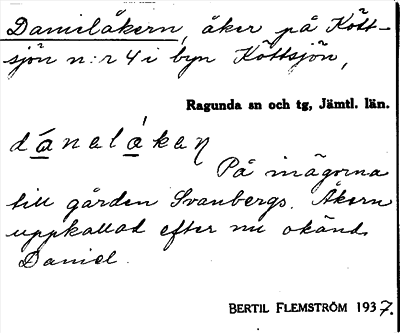 Danielåkern, åker på Kött-
sjön n:r 4 i byn Köttsjön,
Ragunda sn och tg, Jämtl. län.
dánelåken
På inägorna
till gården Svanbergs. Åkern
uppkallad efter nu okänd
Daniel.
BERTIL FLEMSTRÖM 1937.